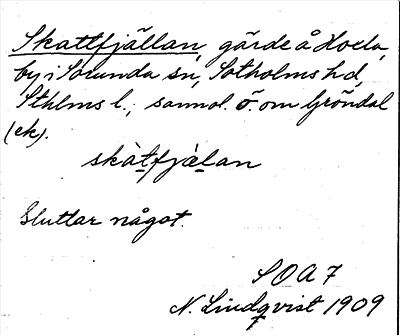 Skattfjällan, gärde å Hoxla,
by i Sorunda sn, Sotholms hd,
Sthlms l., sannol. ö. om Gröndal
(ek).
skàt̲fjäl̲an
Sluttar något.
SOA 7
N. Lindqvist 1909